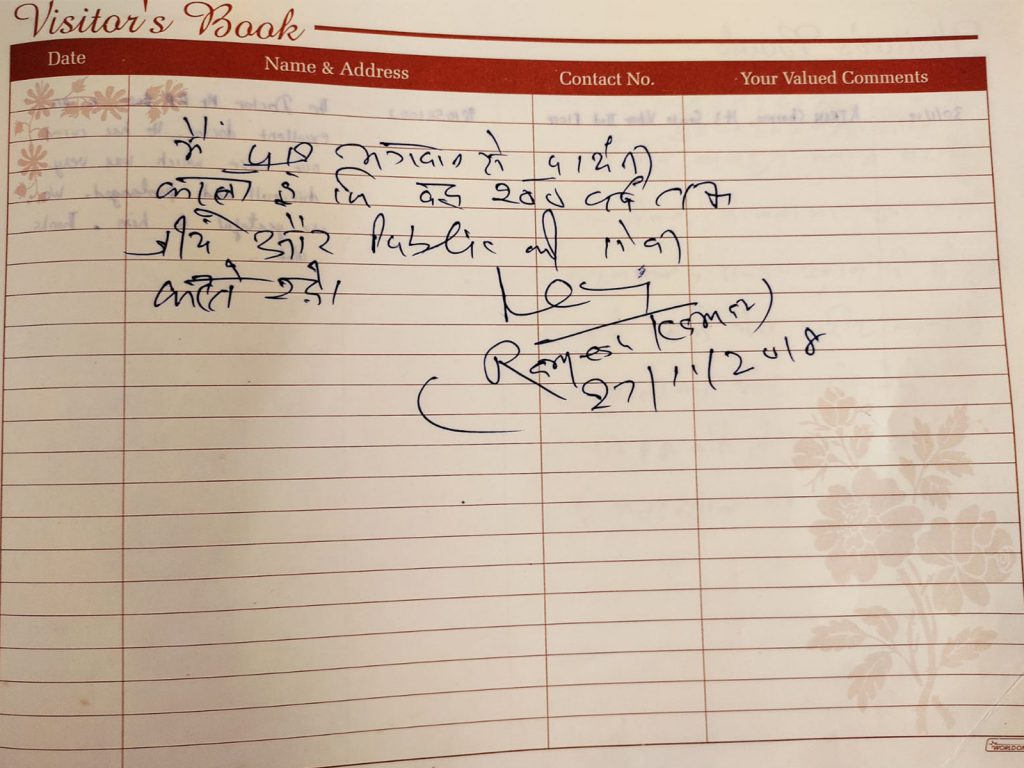 Visitor's Book
Date Name & Address Contact No. Your Valued Comments
मैं भगवान से प्रार्थना
करता हूँ कि वह 200 वर्ष तक
जीयें और Public की सेवा
करते रहें।
Ramesh Kumar)
27/11/2018